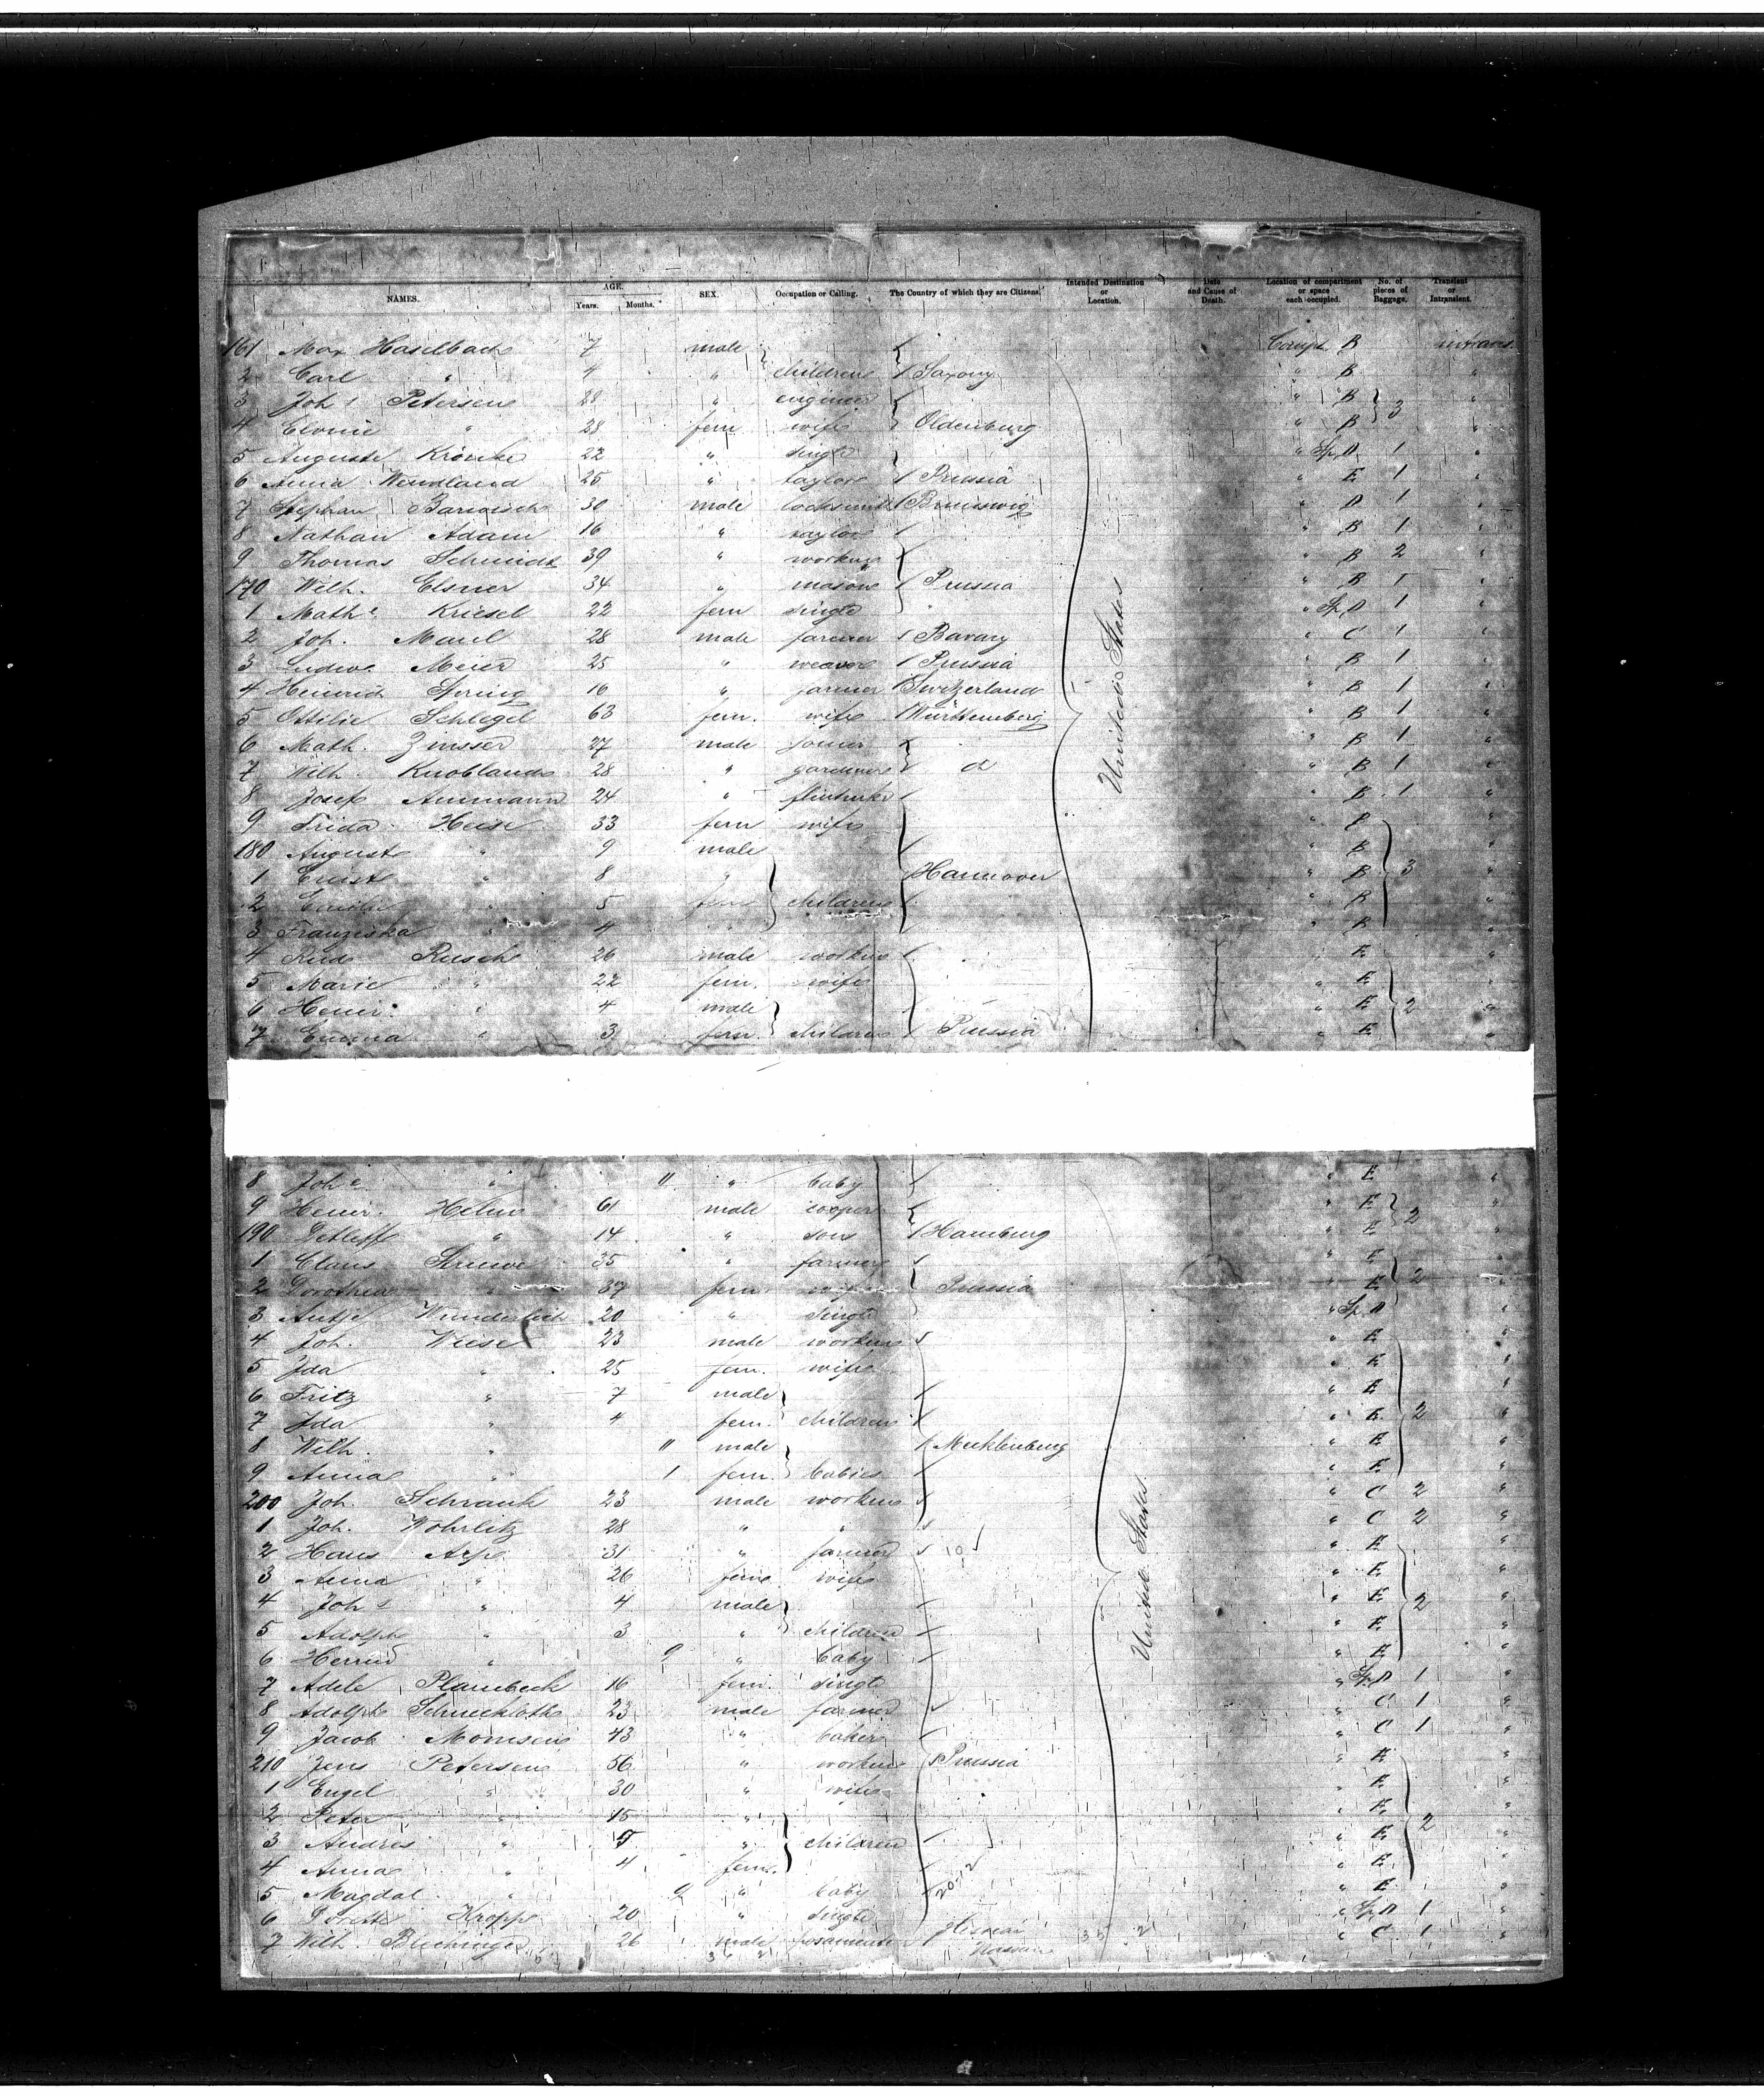 NAMES. AGE. Years. Months. SEX. Occupation or Calling. The Country of which they are Citizens. Intended Destination or Location. Date and Cause of Death. Location of compartment or space each occupied. No. of pieces of Baggage. Transient or Intransient.
161 Max Haselbach 7 male Compt. B intrans.
2 Carl " 4 " children Saxony " B "
3 Joh s Petersen 28 " engineer " B 3 "
4 " 28 fem wife Oldenburg " B "
5 Auguste 22 " single " Sp. D 1 "
6 Anna Wendland 25 " taylor Prussia " E 1 "
7 Stephan 30 male locksmith " D 1 "
8 Nathan Adam 16 " taylor " B 1 "
9 Thomas Schmidt 39 " " B 2 "
170 Wilh. Elsner 34 " mason Prussia " B 1 "
1 Math e Kriesel 22 fem single " Sp. D 1 "
2 Joh. Maul 28 male farmer Bavary " C 1 "
3 Ludw. Meier 25 " weaver Prussia " B 1 "
4 Heinrich Spring 16 " farmer Switzerland " B 1 "
5 Ottilie Schlegel 63 fem. wife Württemberg " B 1 "
6 Math. Zinsser 27 male joiner " B 1 "
7 Wilh. 28 " gardener " B 1 "
8 Josef Ammann 24 " " B 1 "
9 Frida Heise 33 fem wife " B "
180 August " 9 male " B "
1 Ernst " 8 " Hannover " B 3 "
2 Emilie " 5 fem children " B "
3 Franziska " 4 " " B "
4 Rud. Rusch 26 male " E "
5 Marie " 22 fem. wife " E "
6 Heinr. " 4 male " E 2 "
7 Emma " 3 fem. children Prussia " E "
United States
8 Joh e " 11 " baby " E "
9 Heinr. 61 male cooper " E 2 "
190 Detleff " 14 " son Hamburg " E "
1 Claus Struwe 35 " farmer " E 2 "
2 Dorothea " 37 fem Prussia " E "
3 Antje Wunderlich 20 " single " Sp. D "
4 Joh. Wiese 23 male " E "
5 Ida " 25 fem. wife " E "
6 Fritz " 7 male " E "
7 Ida " 4 fem. children " E 2 "
8 Wilh. " 11 male Mecklenburg " E "
9 Anna " 1 fem. babies " E "
200 Joh. Schrank 23 male " C 2 "
1 Joh. Wohrlitz 28 " " " C 2 "
2 Hans Arp 31 " farmer 10 " E "
3 Anna " 26 fem. wife " E "
4 Joh s " 4 male " E 2 "
5 Adolph " 3 " children " E "
6 " 9 " baby " E "
7 Adele Plambeck 16 fem. single " Sp. D 1 "
8 Adolph Schneekloth 23 male farmer " C 1 "
9 Jacob Momsen 43 " baker " C 1 "
210 Jens Petersen 56 " Prussia " E "
1 Engel " 30 " wife " E "
2 Peter " 15 " " E 2 "
3 Andres " 7 " children " E "
4 Anna " 4 fem. " E "
5 Magdal. " 9 " baby " E "
6 Dorette Kropp 20 " single " Sp. D 1 "
7 Wilh. 26 male Nassau " C 1 "
United States.